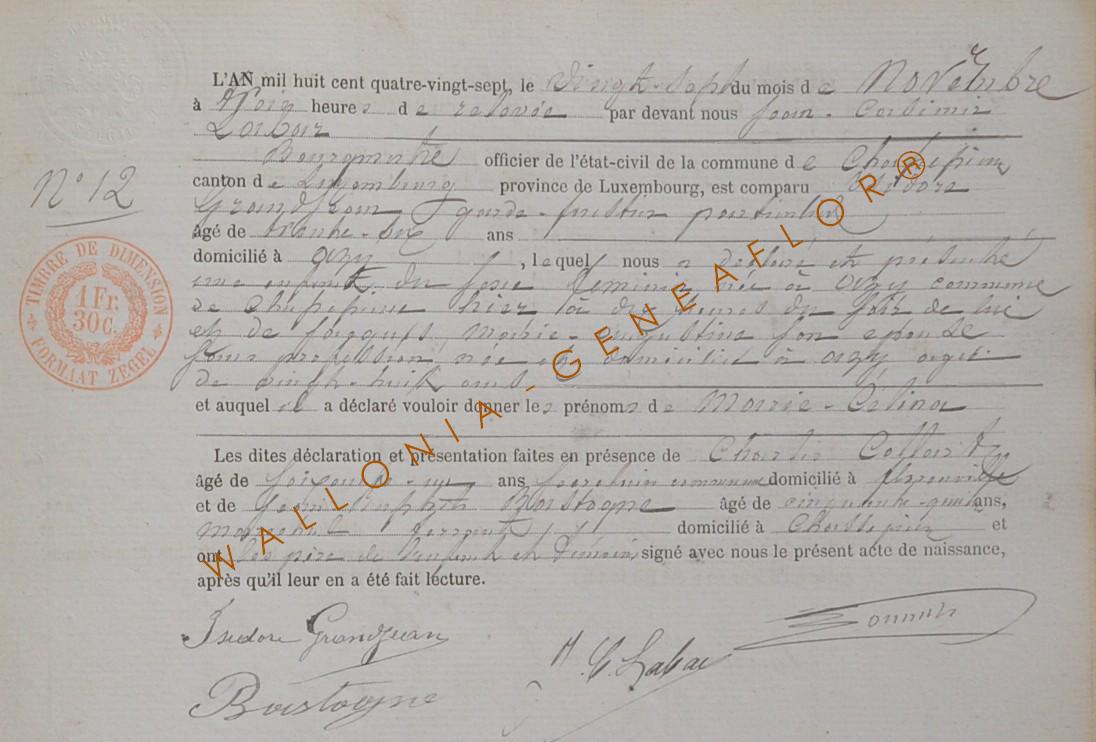 L'AN mil huit cent quatre-vingt-sept, le vingt-sept du mois de Novembre
à trois heures de relevée par devant nous Jean-Casimir
Labar
Bourgmestre officier de l'état-civil de la commune de Chassepierre
N° 12
canton de Luxembourg province de Luxembourg, est comparu Isidore
Grandjean garde-forestier particulier
âgé de trente-six ans
domicilié à Azy, lequel nous a déclaré et présenté
une enfant du sexe féminin née à Azy commune
de Chassepierre hier à dix heures du soir de lui
et de Jacques Marie-Augustine son épouse
sans profession née et domiciliée à Azy âgée
de vingt-huit ans
et auquel il a déclaré vouloir donner les prénoms de Marie-Célina
Les dites déclaration et présentation faites en présence de Charles
âgé de soixante ans communal domicilié à Florenville
et de Jean Baptiste Bastogne âgé de cinquante-quatre ans,
domicilié à Chassepierre et
ont les père de l'enfant et témoins signé avec nous le présent acte de naissance,
après qu'il leur en a été fait lecture.
Isidore Grandjean
J. C. Labar
Bastogne
TIMBRE DE DIMENSION
1 Fr.
30 C.
FORMAAT ZEGEL
WALLONIA-GENEAFLOR®